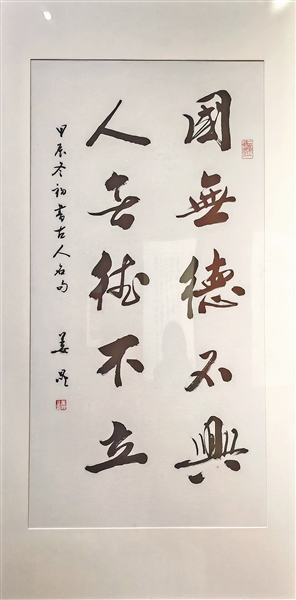 國無德不興
人無德不立
甲辰冬初書古人名句 姜